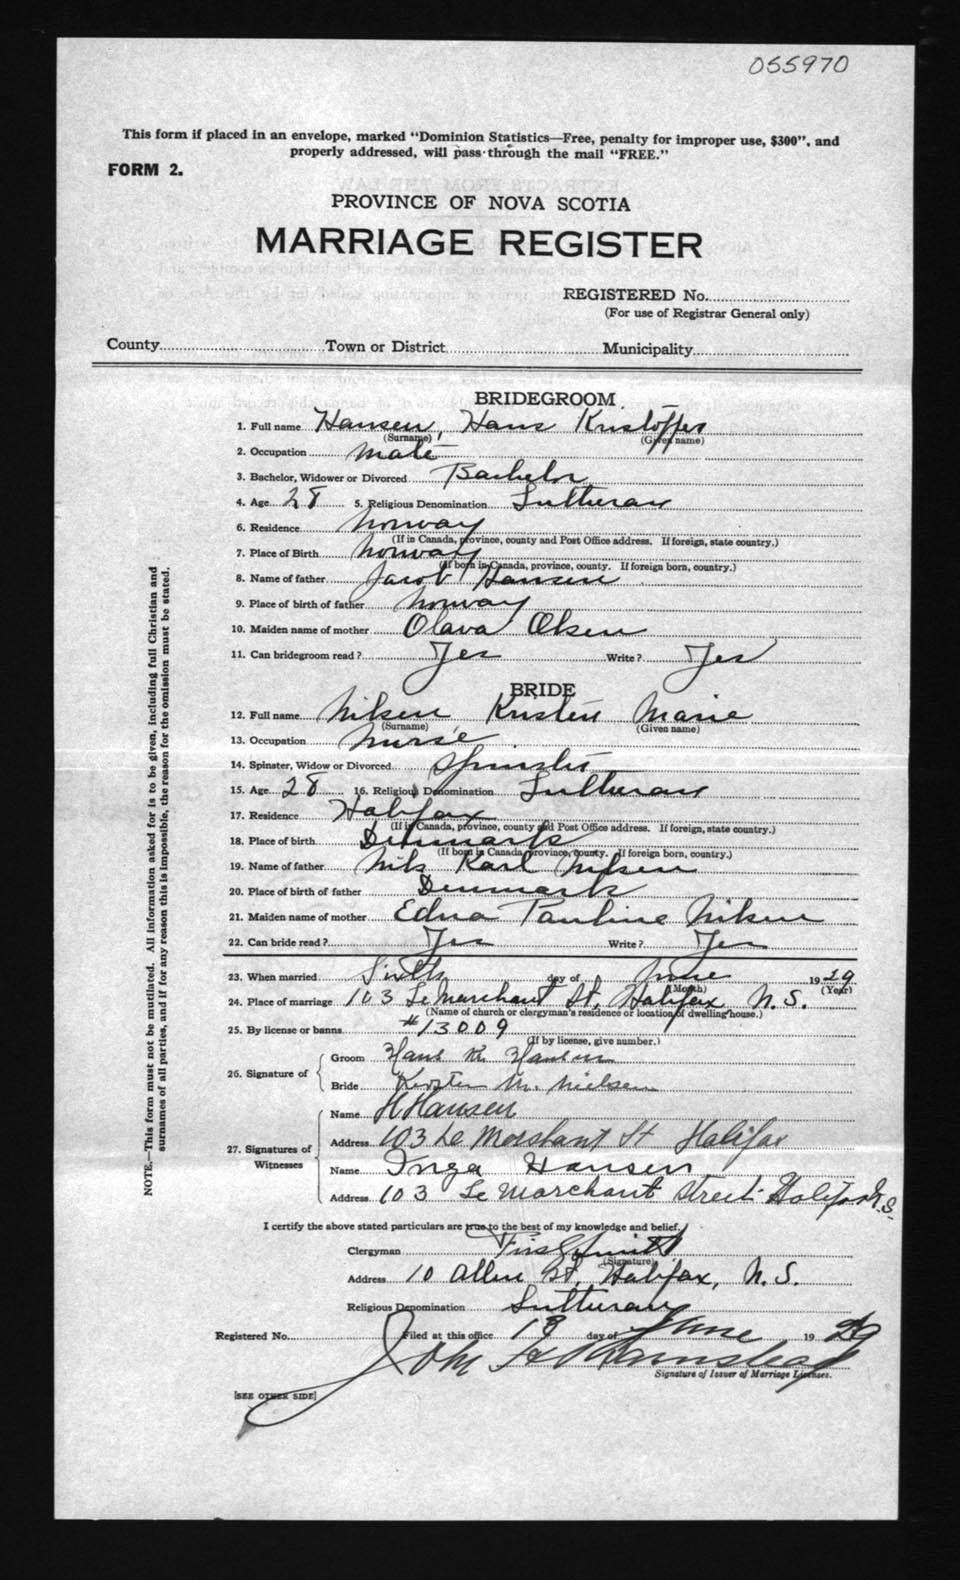 055970
This form if placed in an envelope, marked "Dominion Statistics—Free, penalty for improper use, $300", and
properly addressed, will pass through the mail "FREE."
FORM 2.
PROVINCE OF NOVA SCOTIA
MARRIAGE REGISTER
REGISTERED No.
(For use of Registrar General only)
County Town or District Municipality
BRIDEGROOM
1. Full name Hansen, Hans Kristoffer
(Surname) (Given name)
2. Occupation Mate
3. Bachelor, Widower or Divorced Bachelor
4. Age 28 5. Religious Denomination Lutheran
6. Residence Norway
(If in Canada, province, county and Post Office address. If foreign, state country.)
7. Place of Birth Norway
(If born in Canada, province, county. If foreign born, country.)
8. Name of father Jacob Hansen
9. Place of birth of father Norway
10. Maiden name of mother Olava Olsen
11. Can bridegroom read? Yes Write? Yes
BRIDE
12. Full name Nilsen Kristen Marie
(Surname) (Given name)
13. Occupation Nurse
14. Spinster, Widow or Divorced Spinster
15. Age 28 16. Religious Denomination Lutheran
17. Residence Halifax
(If in Canada, province, county and Post Office address. If foreign, state country.)
18. Place of birth Denmark
(If born in Canada, province, county. If foreign born, country.)
19. Name of father Nils Karl Nilsen
20. Place of birth of father Denmark
21. Maiden name of mother Edna Pauline Nilsen
22. Can bride read? Yes Write? Yes
23. When married Sixth day of June 1929
(Month) (Year)
24. Place of marriage 103 Le Marchant St, Halifax, N.S.
(Name of church or clergyman's residence or location of dwelling house.)
25. By license or banns #13009
(If by license, give number.)
26. Signature of Groom Hans K. Hansen
Bride Kirsten M. Nielsen
27. Signatures of Witnesses
Name H Hansen
Address 103 Le Marshant St Halifax
Name Inga Hansen
Address 103 Le Marchant Street Halifax N.S.
I certify the above stated particulars are true to the best of my knowledge and belief.
Clergyman
(Signature)
Address 10 Allen St, Halifax, N.S.
Religious Denomination Lutheran
Registered No. Filed at this office 13 day of June 1929
John
Signature of Issuer of Marriage Licenses.
[SEE OTHER SIDE]
NOTE.—This form must not be mutilated. All information asked for is to be given, including full Christian and
surnames of all parties, and if for any reason this is impossible, the reason for the omission must be stated.